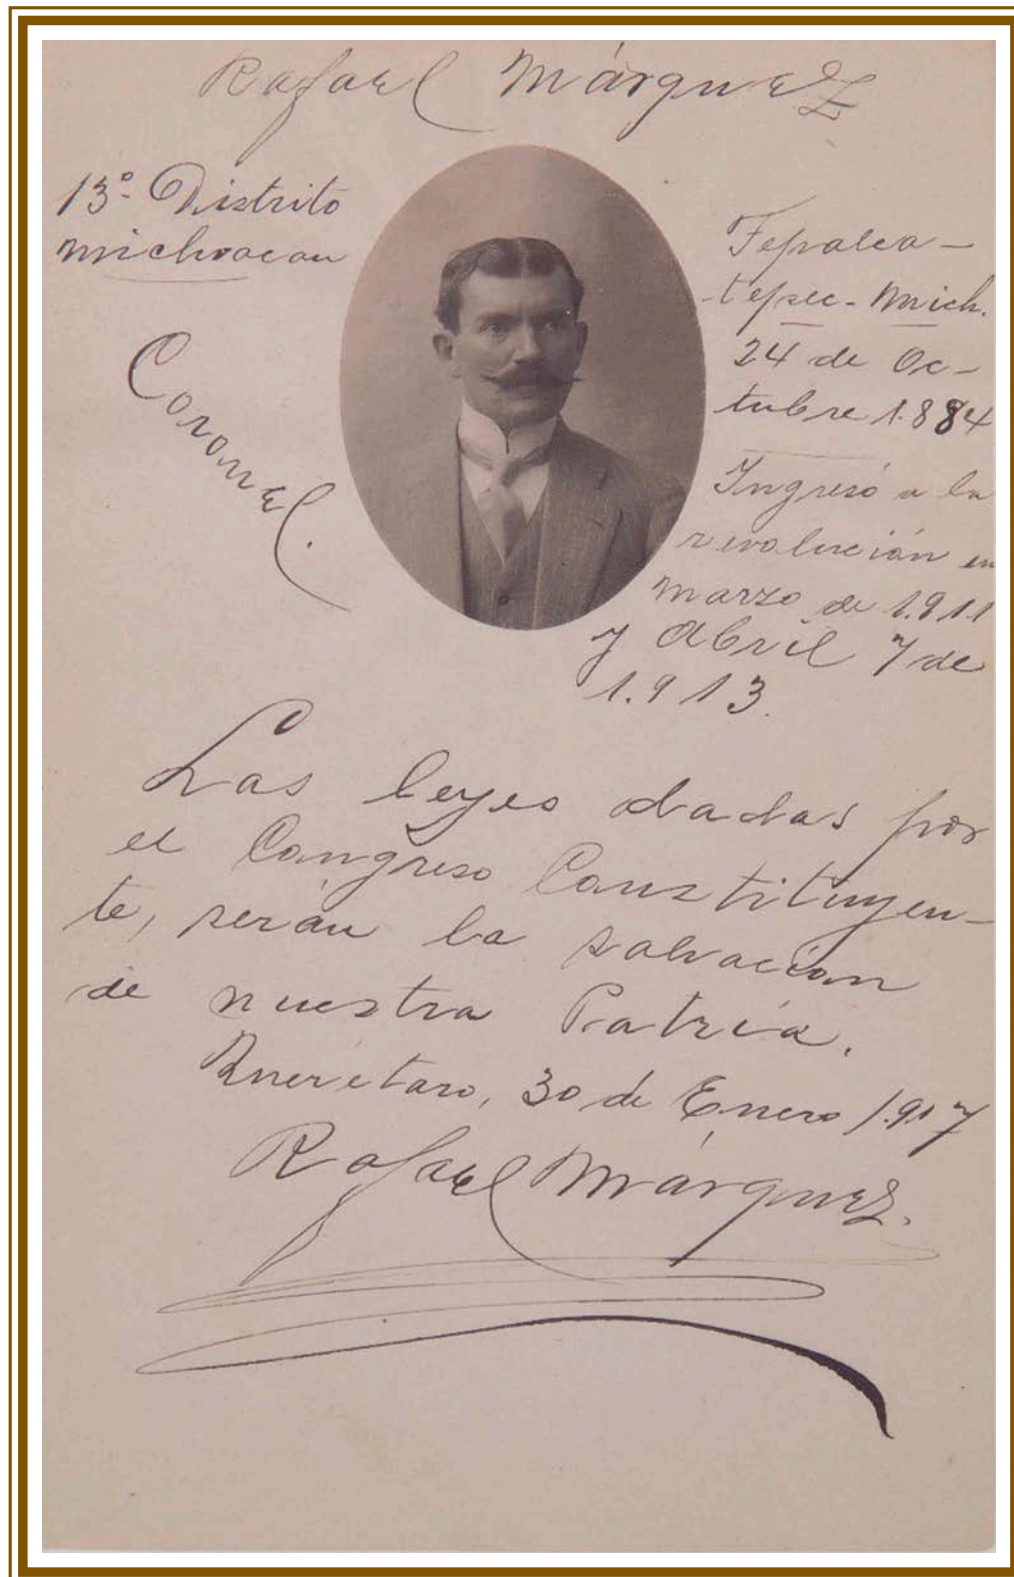 Rafael Márquez
13º Distrito
Michoacan
Coronel.
Tepalca-
-tepec- Mich.
24 de Oc-
tubre 1.884
Ingresó a la
revolución en
Marzo de 1.911
y Abril 7 de
1.913.
Las leyes dadas por
el Congreso Constituyen-
te, serán la salvacion
de nuestra Patria.
Querétaro, 30 de Enero 1.917
Rafael Márquez.